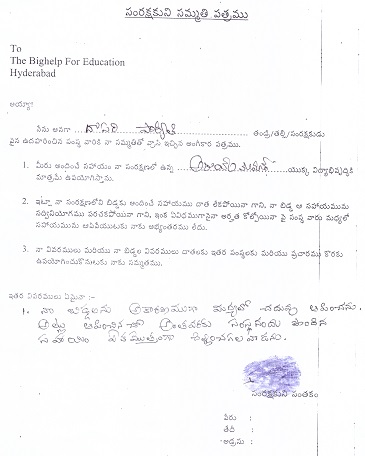 సంరక్షకుని సమ్మతి పత్రము
To
The Bighelp For Education
Hyderabad
అయ్యా!
నేను అనగా దాసరి పార్వతి తండ్రి/తల్లి/సంరక్షకుడు
పైన ఉదహరించిన సంస్థ వారికి నా సమ్మతితో వ్రాసి ఇచ్చిన అంగీకార పత్రము.
1. మీరు అందించే సహాయం నా సంరక్షణలో ఉన్న యొక్క విద్యాభివృద్ధికి
మాత్రమే ఉపయోగిస్తాను.
2. ఇట్లా నా సంరక్షణలోని బిడ్డకు అందించే సహాయము దాత లేకపోయినా గాని, నా బిడ్డ ఆ సహాయమును
సద్వినియోగము పరచకపోయినా గాని, ఇంక ఏవిధముగానైనా అర్హత కోల్పోయినా పై సంస్థ వారు మధ్యలో
సహాయమును ఆపివేయుటకు నాకు అభ్యంతరము లేదు.
3. నా వివరములు మరియు నా బిడ్డల వివరములు దాతలకు ఇతర సంస్థలకు మరియు ప్రచారము కొరకు
ఉపయోగించుకొనుటకు నాకు సమ్మతము.
ఇతర వివరములు ఏమైనా :-
1. నా బిడ్డలను అకారణముగా మధ్యలో చదువు ఆపించను.
అట్లు ఆపించిన చో అంతవరకు సంస్థ నుండి పొందిన
సహాయం
సంరక్షకుని సంతకం
పేరు :
తేదీ :
అడ్రసు :